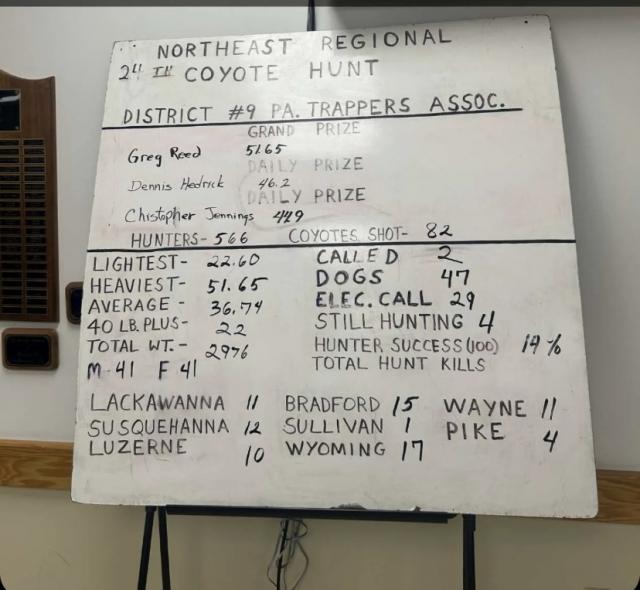 NORTHEAST REGIONAL
24 TH COYOTE HUNT
DISTRICT #9 PA. TRAPPERS ASSOC.
GRAND PRIZE
Greg Reed 51.65
DAILY PRIZE
Dennis Hedrick 46.2
DAILY PRIZE
Chistopher Jennings 449
HUNTERS- 566 COYOTES SHOT- 82
LIGHTEST- 22.60 CALLED 2
HEAVIEST- 51.65 DOGS 47
AVERAGE - 36.74 ELEC. CALL 29
40 LB. PLUS- 22 STILL HUNTING 4
TOTAL WT.- 2976 HUNTER SUCCESS (100) 14 %
M-41 F 41 TOTAL HUNT KILLS
LACKAWANNA 11 BRADFORD 15 WAYNE 11
SUSQUEHANNA 12 SULLIVAN 1 PIKE 4
LUZERNE 10 WYOMING 17